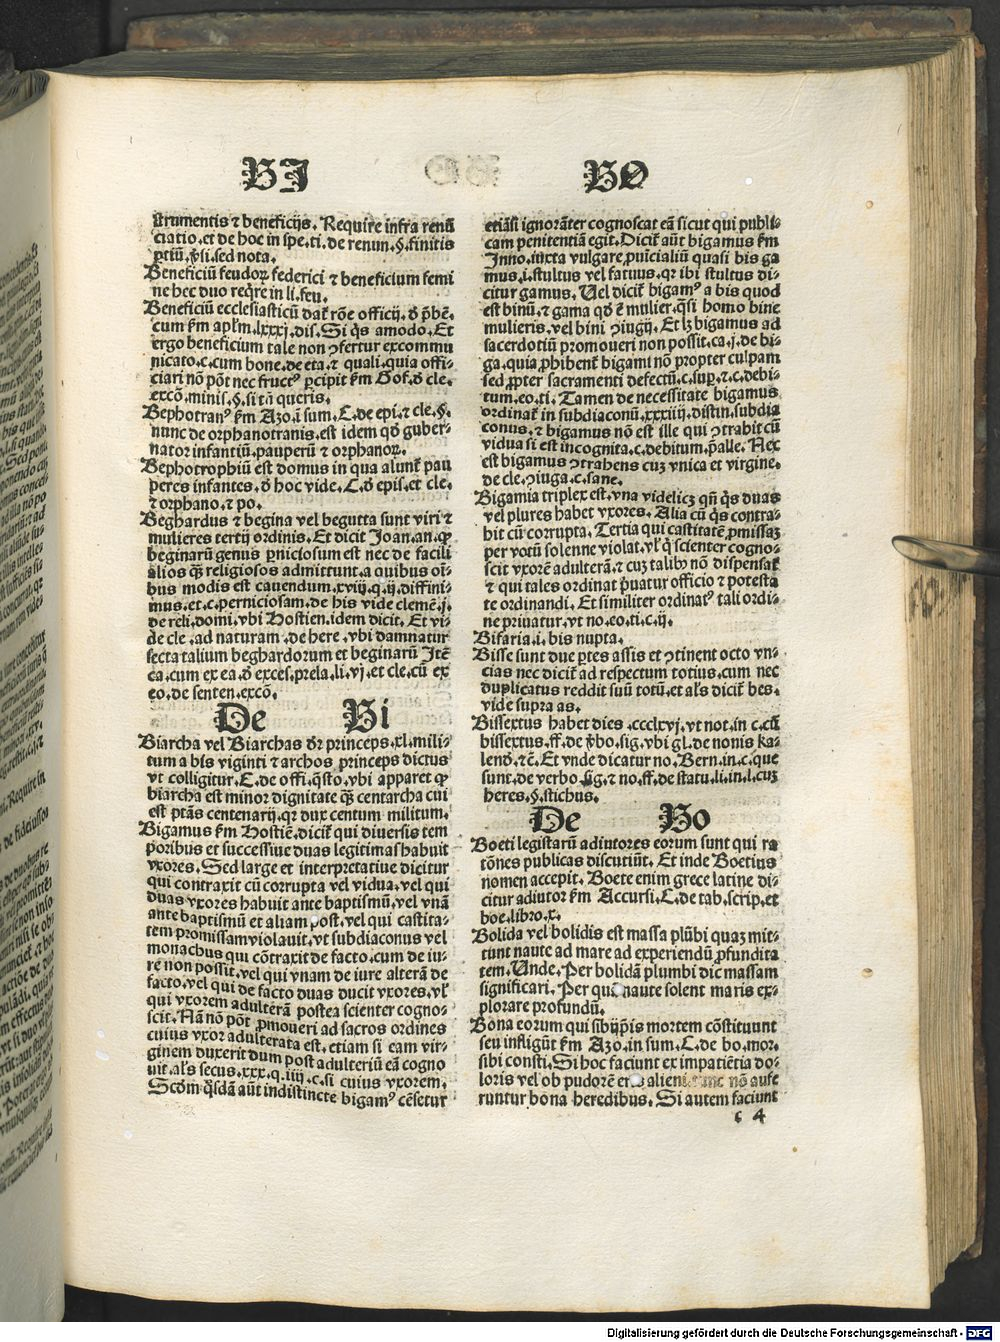 BI
BO
strumentis ⁊ beneficijs. Require infra renū
ciatio. et de hoc in spe. ti. de renun. §. finitis
ꝑtiū. ꝟsi. sed nota.
Beneficiū feudoꝝ federici ⁊ beneficium femi
ne hec duo reꝗre in li. feu.
Beneficiū ecclesiasticū dat᷑ rōe officij. ꝺ p̄bē.
cum ẜm apl̄m. lxxxj. dis. Si ꝗs amodo. Et
ergo beneficium tale non ꝯfertur excommu
nicato. c. cum bone. de eta. ⁊ quali. quia offi-
ciari nō pōt nec fructꝰ ꝑcipit ẜm Gof. ꝺ cle.
excō. minis. §. si tn̄ queris.
Bephotranꝰ ẜm Azo. ī sum. C. de epi. ⁊ cle. §.
nunc de orphanotranis. est idem qd̄ guber-
nator infantiū. pauperū ⁊ orphanoꝝ.
Bephotrophiū est domus in qua alunt᷑ pau
peres infantes. ꝺ hoc vide. C. ꝺ epis. et cle.
⁊ orphano. ⁊ po.
Beghardus ⁊ begina vel begutta sunt viri ⁊
mulieres tertij ordinis. Et dicit Joan. an. ꝙ
beginarū genus ꝑniciosum est nec de facili
alios qȝ religiosos admittunt. a quibus oī-
bus modis est cauendum. xviij. q. ij. diffini-
mus. et. c. perniciosam. de his vide clemē. j.
de reli. domi. vbi Hostien. idem dicit. Et vi-
de cle. ad naturam. de here. vbi damnatur
secta talium beghardorum et beginarū Itē
ca. cum ex ea. ꝺ exces. prela. li. vj. et cle. cū ex
eo. de senten. excō.
De Bi
Biarcha vel Biarchas dr̄ princeps. xl. mili-
tum a bīs viginti ⁊ archos princeps dictus
vt colligitur. C. de offi. q̄sto. vbi apparet ꝙ
biarcha est minor dignitate qȝ centarcha cui
est ptās centenarij. qr dux centum militum.
Bigamus ẜm Hostiē. dicit᷑ qui diuersis tem
poribus et successiue duas legitimas habuit
vxores. Sed large et interpretatiue dicitur
qui contraxit cū corrupta vel vidua. vel qui
duas vxores habuit ante baptismū. vel vnā
ante baptismū et aliam post. vel qui castita-
tem promissam violauit. vt subdiaconus vel
monachus qui cōtraxit de facto. cum de iu-
re non possit. vel qui vnam de iure alterā de
facto. vel qui de facto duas ducit vxores. vꝉ
qui vxorem adulterā postea scienter cogno-
scit. Nā nō pōt ꝓmoueri ad sacros ordines
cuius vxor adulterata est. etiam si eam vir-
ginem duxerit dum post adulteriū eā cogno
uit. al̄s secus. xxx. q. iiij. c. si cuius vxorem.
Scd̄m q̄sdā aūt indistincte bigamꝰ cēsetur
etiāsi ignorāter cognoscat eā sicut qui publi-
cam penitentiā egit. Dicit᷑ aūt bigamus ẜm
Inno. iuxta vulgare ꝓuicialiū quasi bis ga
mus. i. stultus vel fatuus. qr ibi stultus di-
citur gamus. Uel dicit᷑ bigamꝰ a bis quod
est binū. ⁊ gama qd̄ ē mulier. q̄si homo bine
mulieris. vel bini ꝯiugij. Et lȝ bigamus ad
sacerdotiū promoueri non possit. ca. j. de bi-
ga. quia ꝓhibent᷑ bigami nō propter culpam
sed ꝓpter sacramenti defectū. c. suꝑ. ⁊. c. debi-
tum. eo. ti. Tamen de necessitate bigamus
ordinat᷑ in subdiaconū. xxxiiij. distin. subdia
conus. ⁊ bigamus nō est ille qui ꝯtrahit cū
vidua si est incognita. c. debitum. ꝑalle. Nec
est bigamus ꝯtrahens cuȝ vnica et virgine.
de cle. ꝯiuga. c. sane.
Bigamia triplex est. vna videlicȝ qn̄ ꝗs duas
vel plures habet vxores. Alia cū ꝗs contra-
hit cū corrupta. Tertia qui castitatē ꝓmissaȝ
per votū solenne violat. vꝉ ꝗ scienter cogno-
scit vxorē adulterā. ⁊ cuȝ talib᷒ nō dispensat᷑
⁊ qui tales ordinat p̄uatur officio ⁊ potesta
te ordinandi. Et similiter ordinatꝰ tali ordi-
ne priuatur. vt no. eo. ti. c. ij.
Bifaria. i. bis nupta.
Bisse sunt due ꝑtes assis et ꝯtinent octo vn-
cias nec dicit᷑ ad respectum totius. cum nec
duplicatus reddit suū totū. et al̄s dicit᷑ bes.
vide supra as.
Bissextus habet dies. ccclxvj. vt not. in c. cū
bissextus. ff. de ꝟbo. sig. vbi gl. de nonis ka-
lend̄. ⁊ē. Et vnde dicatur no. Bern. in. c. que
sunt. de verbo sig. ⁊ no. ff. de statu. li. in. l. cuȝ
heres. §. stichus.
De Bo
Boeti legistarū adiutores eorum sunt qui ra
tōnes publicas discutiūt. Et inde Boetius
nomen accepit. Boete enim grece latine di-
citur adiutor ẜm Accursi. C. de tab. scrip. et
boe. libro. x.
Bolida vel bolidis est massa plūbi quaȝ mit-
tunt naute ad mare ad experiendū ꝓfundita
tem. Unde. Per bolidā plumbi dic massam
significari. Per quā naute solent maris ex-
plorare profundū.
Bona eorum qui sibijp̄is mortem cōstituunt
seu infligūt ẜm Azo. in sum. C. de bo. mor.
sibi consti. Si hoc faciunt ex impatiētia do-
loris vel ob pudorē eris alieni tunc nō aufe
runtur bona heredibus. Si autem faciunt
c 4
Digitalisierung gefördert durch die Deutsche Forschungsgemeinschaft - DFG